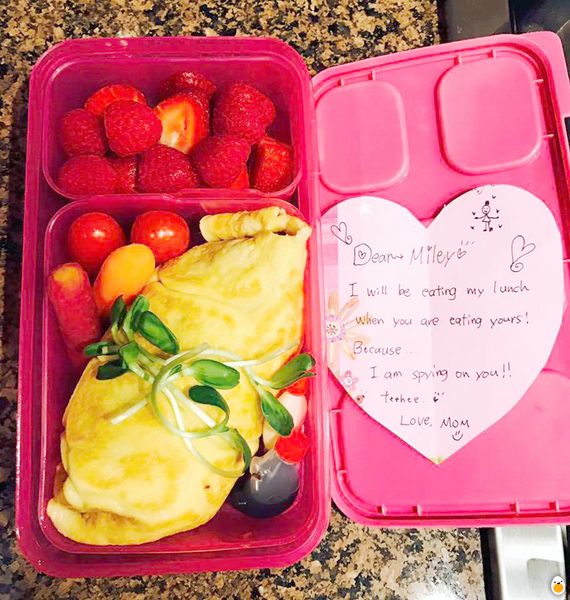 Dear Miley
I will be eating my lunch
when you are eating yours!
Because..
I am spying on you!!
teehee..
Love, MOM